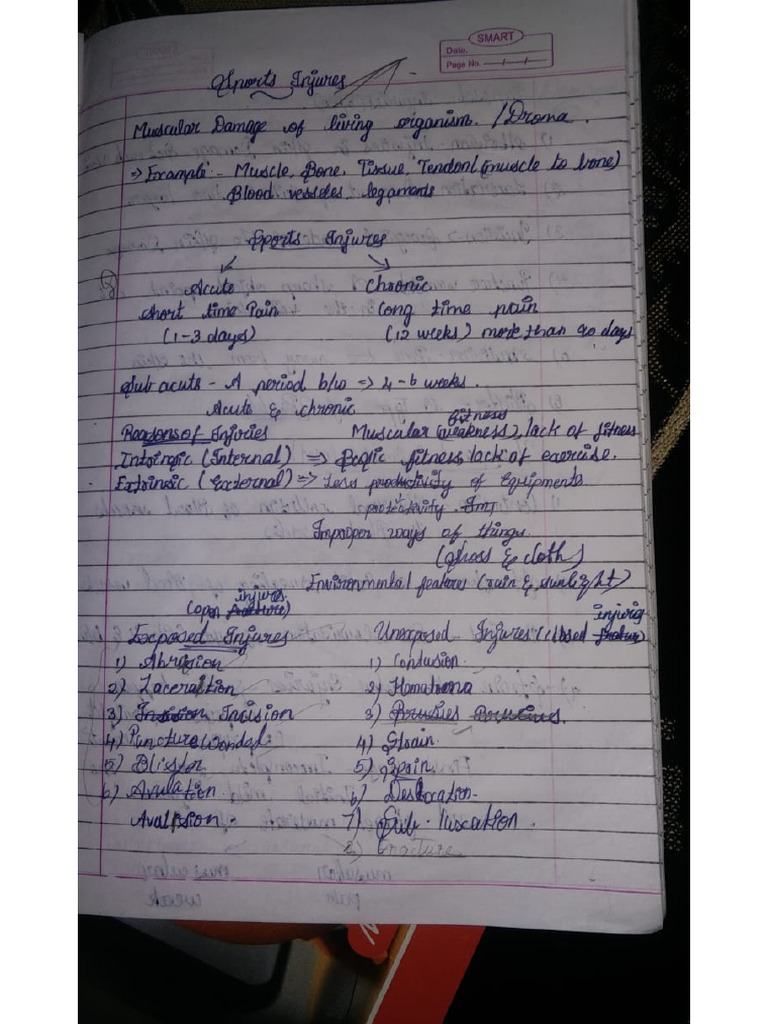 SMART
Date.
Page No.
Sports Injures
Muscular Damage of living organism. / Droma.
=> Example:- Muscle, Bone, Tissue, Tendon (muscle to bone)
Blood vessles, legaments
Sports Injures
Acute Chronic
Short time Pain Long time pain
(1-3 days) (12 weeks) more than 90 days
Sub acuts - A period b/w => 4-6 weeks.
Acute & chronic
Reasons of Injuries Muscular (weakness) fitness, lack of fitness
Intringic (Internal) => fitness, lack of exercise.
Extrinsic (External) => Less productivity of Equipments
protectivity.
Improper ways of things.
(Shoss & cloth)
Environmental feature (rain & sunlight)
(open injures) injuries
Exposed Injures Unexposed Injures (closed
1) Abrasion 1) Condusion.
2) Laceration 2) Hematoma
3) Incision 3)
4) Puncture Wondal 4) Strain.
5) Blister 5) Spain.
6) Avulation 6) Deslocation.
Avalssion. 7) Sub-luxcation.
8) Fracture